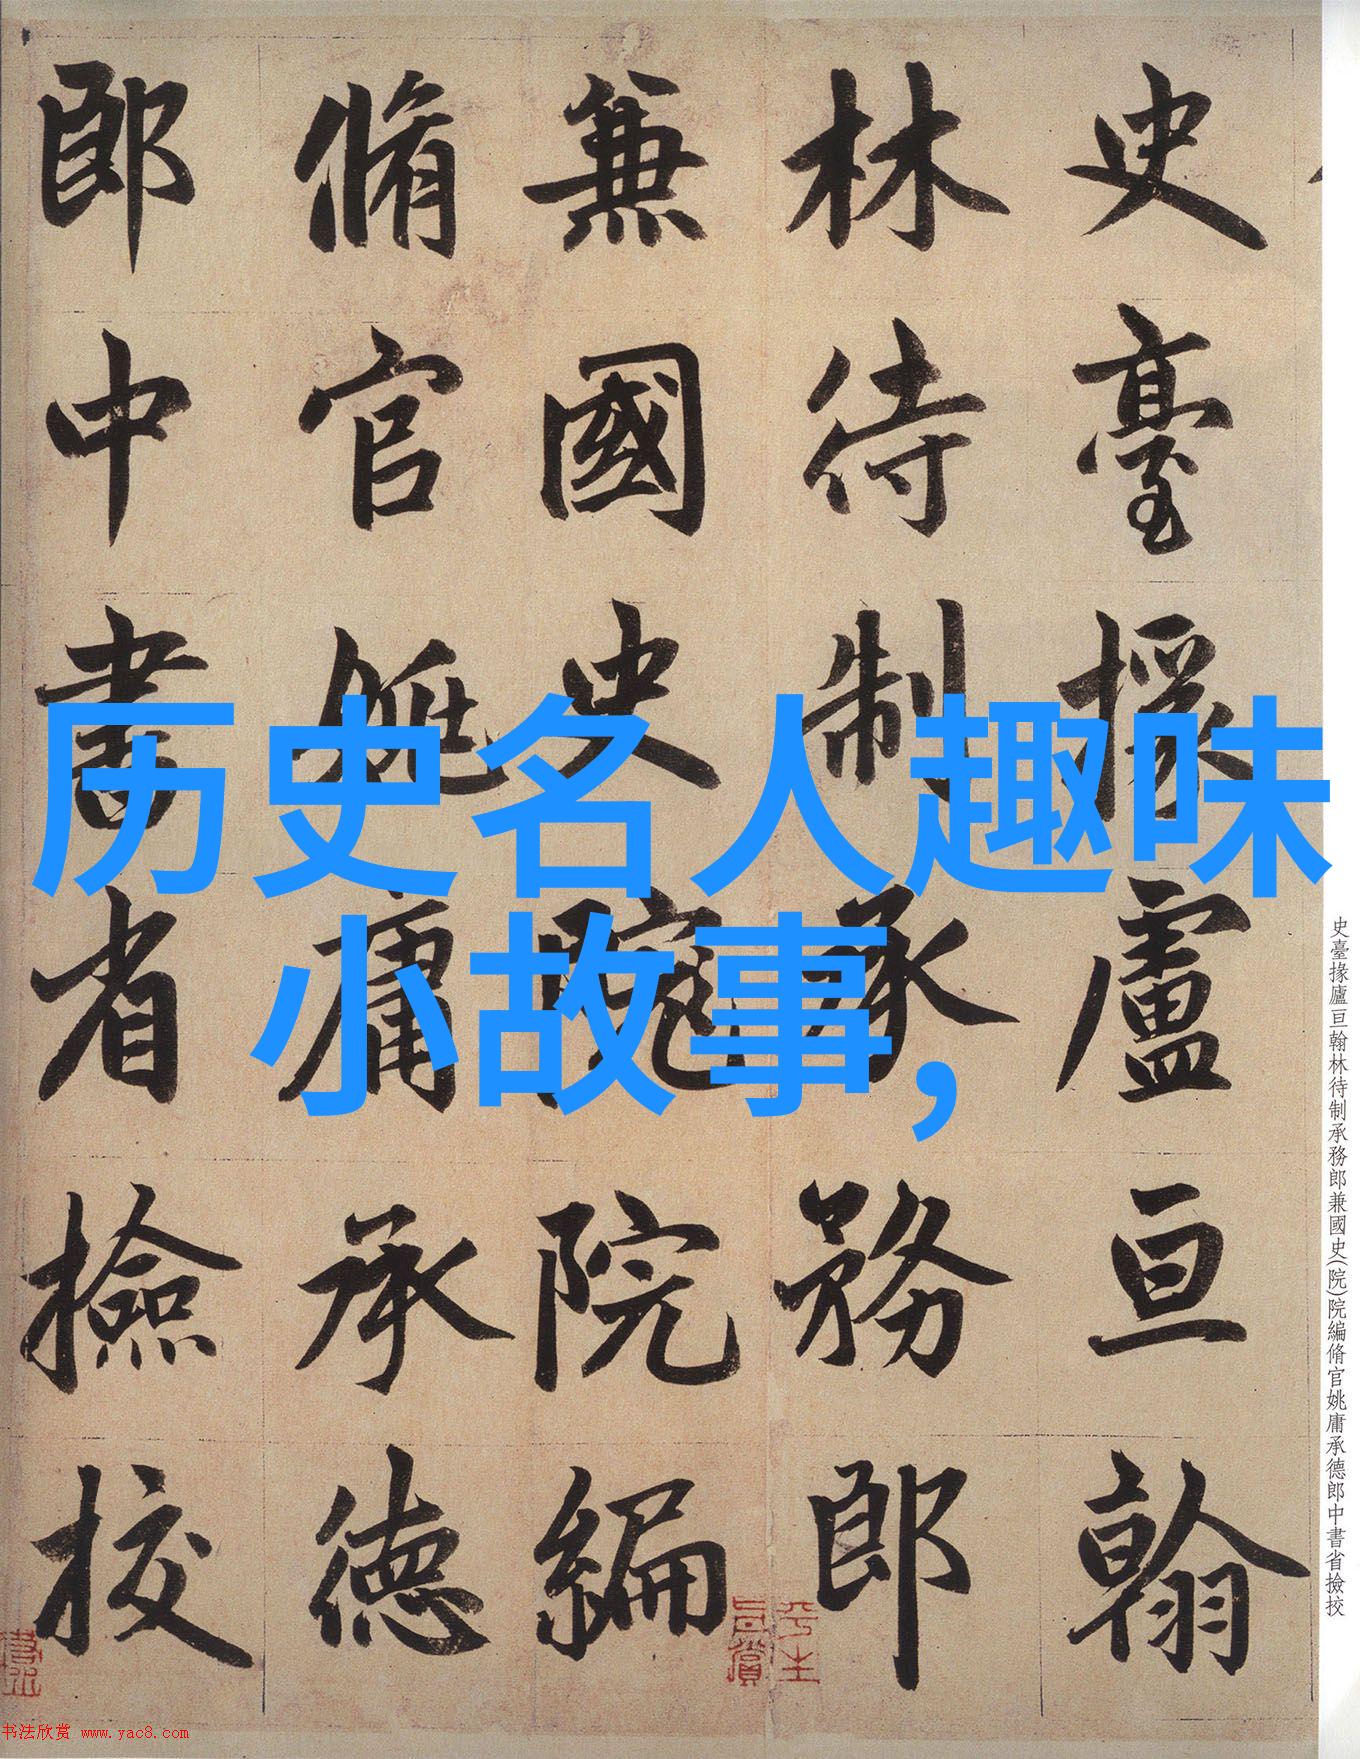 史臺掾盧亘翰
林待制承務郎
兼國史院院編
脩官姚庸承德
郎中書省撿挍
历史名人趣味
小故事,
史臺掾廬亘翰林待制承務郎兼國史(院)院編脩官姚庸承德郎中書省撿挍
书法欣赏 www.yac8.com